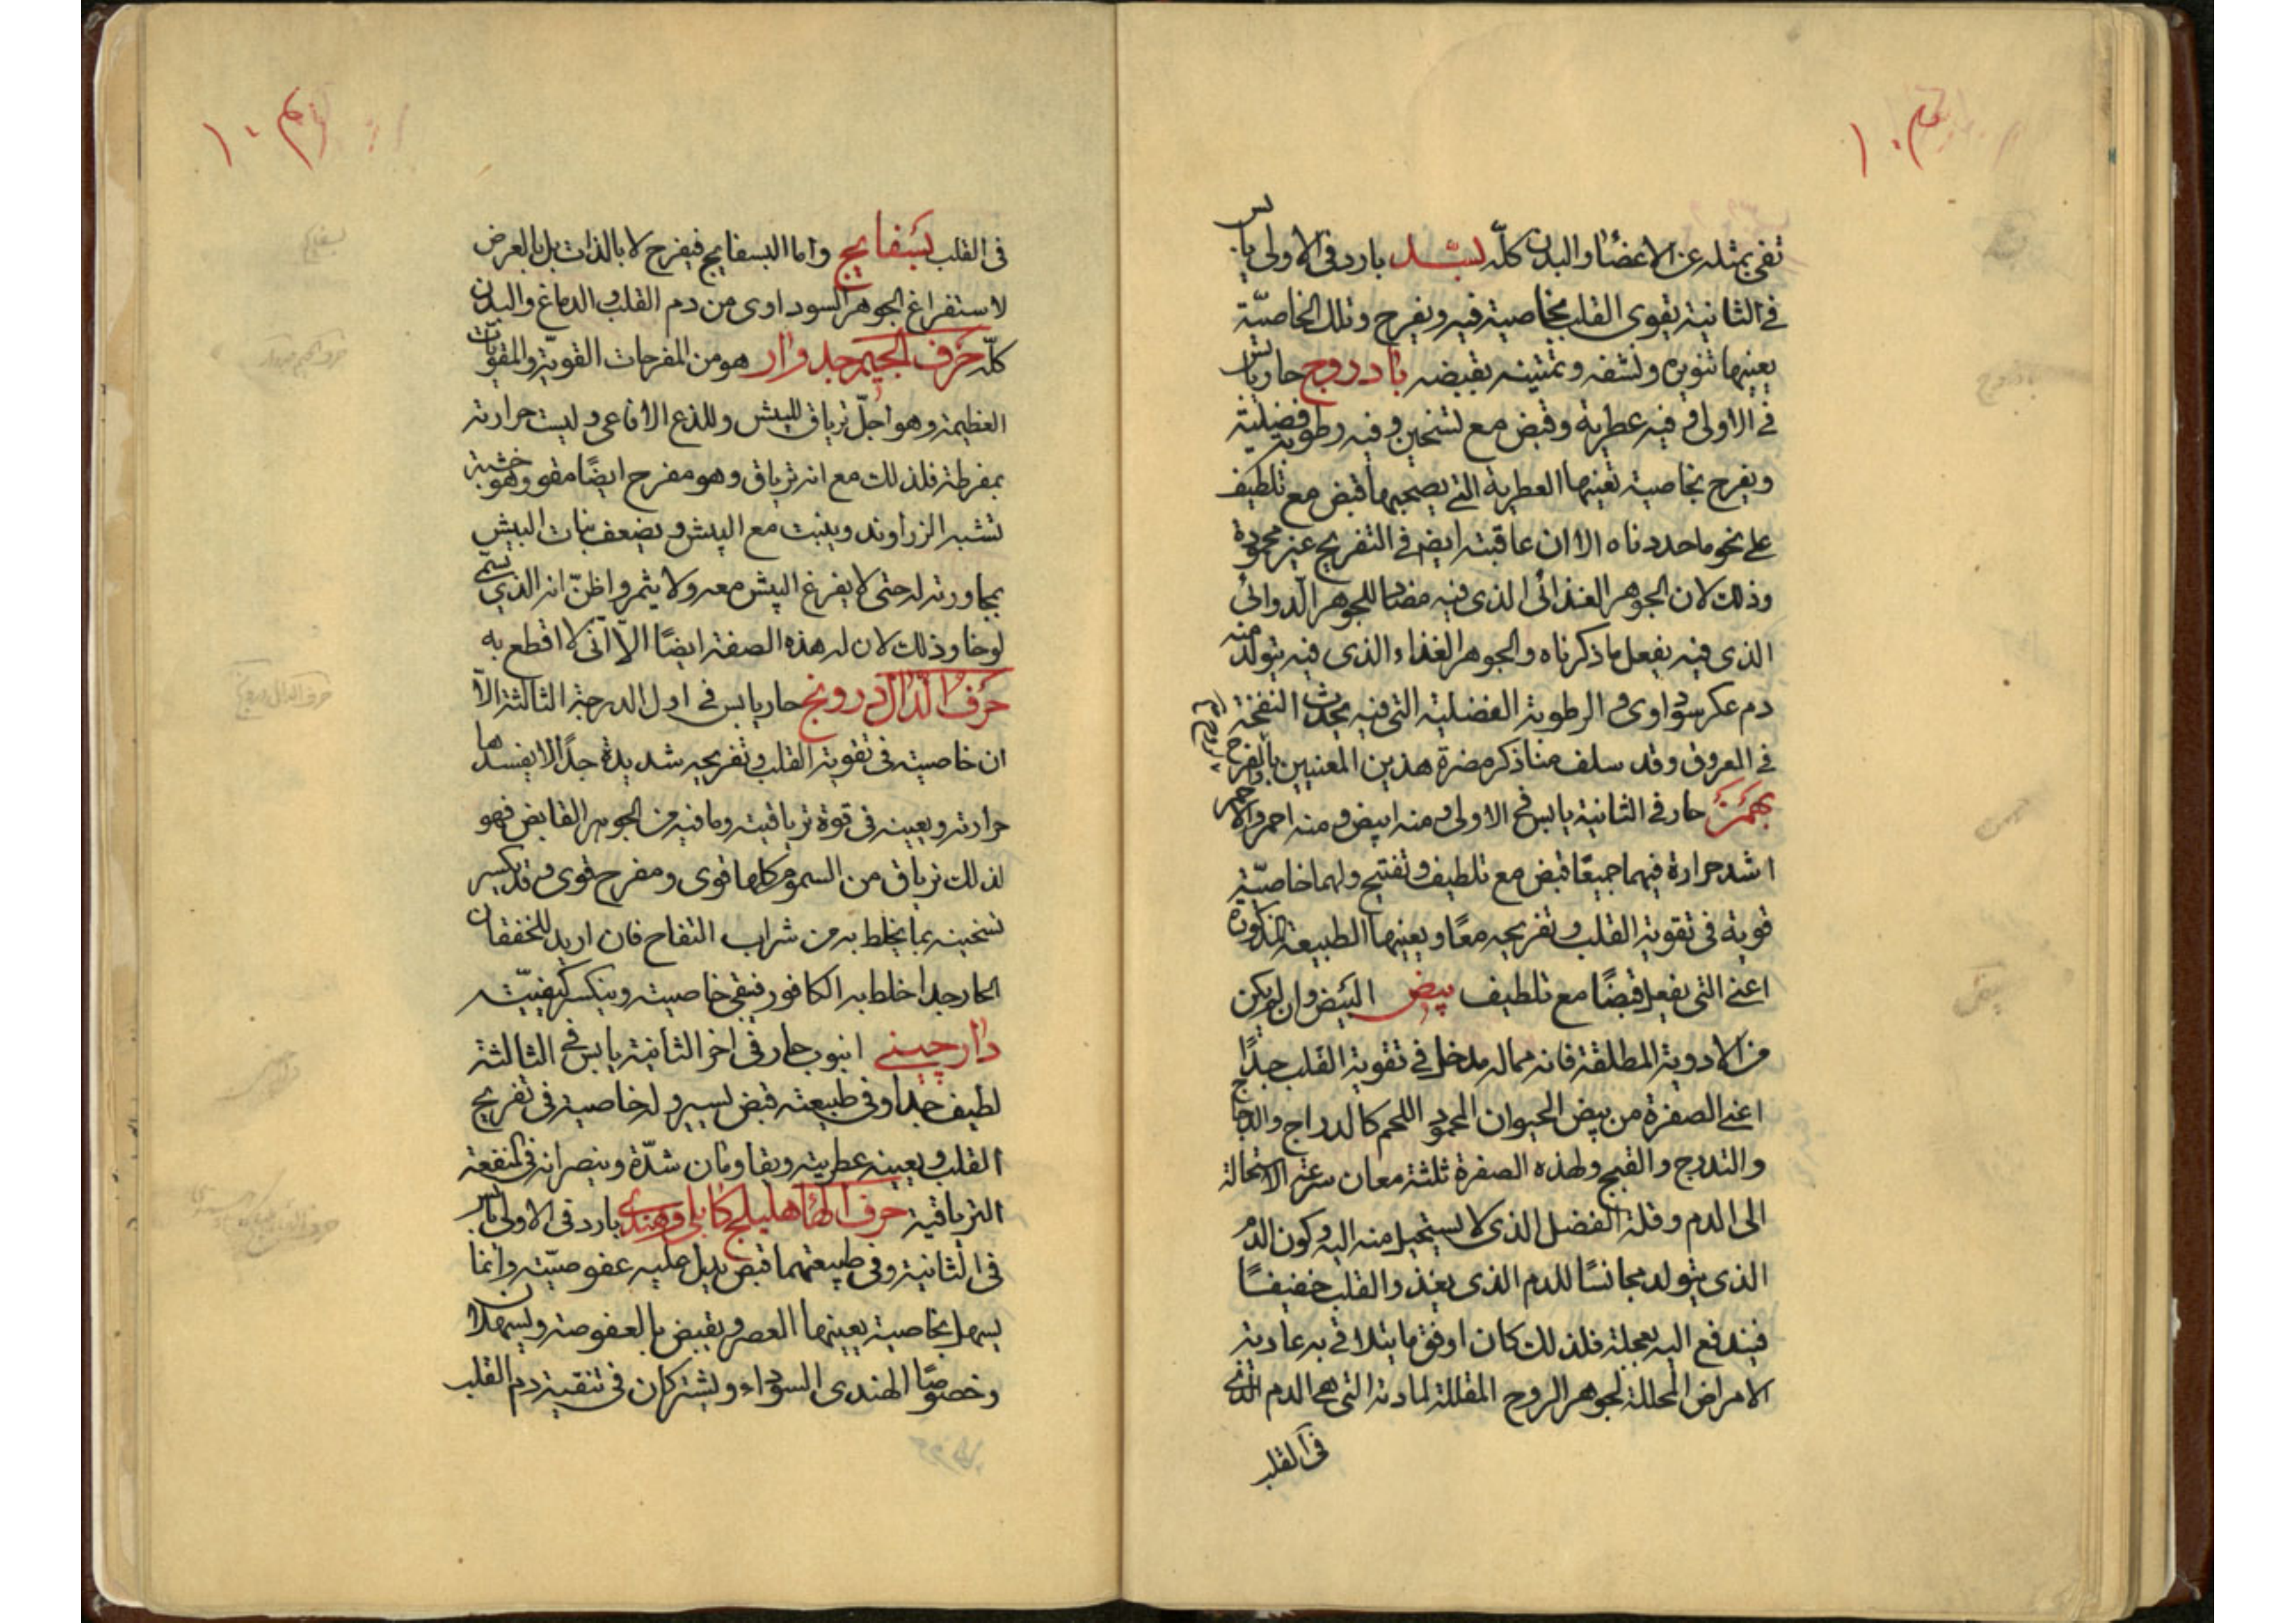 تفى بمثله عن الاعضاء والبدن كلّه بسد بارد فى الاولى يابس
فى الثانية يقوى القلب بخاصية فيه ويفرح وتلك الخاصيّة
يعينها تنويره ونشفه وتمتينه بقبضه بادروج حار يابس
فى الاولى وفيه عطرية وقبض مع تسخين وفيه رطوبة فضلية
ويفرح بخاصية تعينها العطرية التى يصحبها قبض مع تلطيف
على نحو ما حددناه الا ان عاقبته ايضا فى التفريح غير محمودة
وذلك لان الجوهر الغذائى الذى فيه مضاد للجوهر الدوائى
الذى فيه يفعل ما ذكرناه والجوهر الغذاء الذى فيه يتولد منه
دم عكر سوداوى والرطوبة الفضلية التى فيه يحدث النفخة
فى العروق وقد سلف منا ذكر مضرة هذين المعنيين بالفرح
بهمن حار فى الثانية يابس فى الاولى ومنه ابيض ومنه احمر والاحمر
اشد حرارة فيهما جميعا قبض مع تلطيف وتفتيح ولهما خاصيّة
قوية فى تقوية القلب وتفريحه معًا ويعينهما الطبيعة المذكورة
اعنى التى يفعل قبضًا مع تلطيف بيض البيض وان لم يكن
من الادوية المطلقة فانه مما له مدخل فى تقوية القلب جدًا
اعنى الصفرة من بيض الحيوان المحمود اللحم كالدراج والدجاج
والتدرج والقبج ولهذه الصفرة ثلثة معان سرعة الاستحالة
الى الدم وقلة الفضل الذى لا يستحيل منه اليه وكون الدم
الذى يتولد مجانسًا للدم الذى يغذو القلب خفيفًا
فيندفع اليه بعجلة فلذلك كان اوفق ما يتلافى به عادية
الامراض المحللة لجوهر الروح المقللة لمادته التى هى الدم الذى
فى القلب
فى القلب بسفايج واما البسفايج فيفرح لا بالذات بل بالعرض
لاستفراغ الجوهر السوداوى من دم القلب والدماغ والبدن
كلّه حرف الجيم جدوار هو من المفرحات القويّة والمقويات
العظيمة وهو اجلّ ترياق للبيش وللذع الافاعى وليست حرارته
بمفرطة فلذلك مع انه ترياق وهو مفرح ايضًا مقو وهو خشبة
تشبه الزراوند وينبت مع البيش ويضعف نبات البيش
بمجاورته له حتى لا يفرغ البيش معه ولا يثمر واظنّ انه الذى يسمّى
لوحا وذلك لان له هذه الصفة ايضًا الّا انّى لا اقطع به
حرف الدال درونج حار يابس فى اول الدرجة الثالثة الّا
ان خاصيته فى تقوية القلب وتفريحه شديدة جدًا لا يفسدها
حرارته ويعينه فى قوة ترياقيته وما فيه من الجوهر القابض فهو
لذلك ترياق من السموم كلها قوى ومفرح قوى وقد يكسر
تسخينه بما يخلط به من شراب التفاح فان اريد للخفقان
الحار جدا خلط به الكافور فتبقى خاصيته وينكسر كيفيّته
دارچينى انبوب حار فى اخر الثانية يابس فى الثالثة
لطيف جدا وفى طبيعته قبض يسير وله خاصية فى تفريح
القلب ويعينه عطريته ويقاومان شدّة وينصرانه فى المنفعة
الترياقية حرف الهاء هليلج كابلى وهندى بارد فى الاولى يابس
فى الثانية وفى طبيعتهما قبض يدل عليه عفوصيّته وانما
يسهل بخاصية يعينها العصر ويقبض بالعفوصة ويسهلان
وخصوصًا الهندى السوداء ويشتركان فى تنقية دم القلب